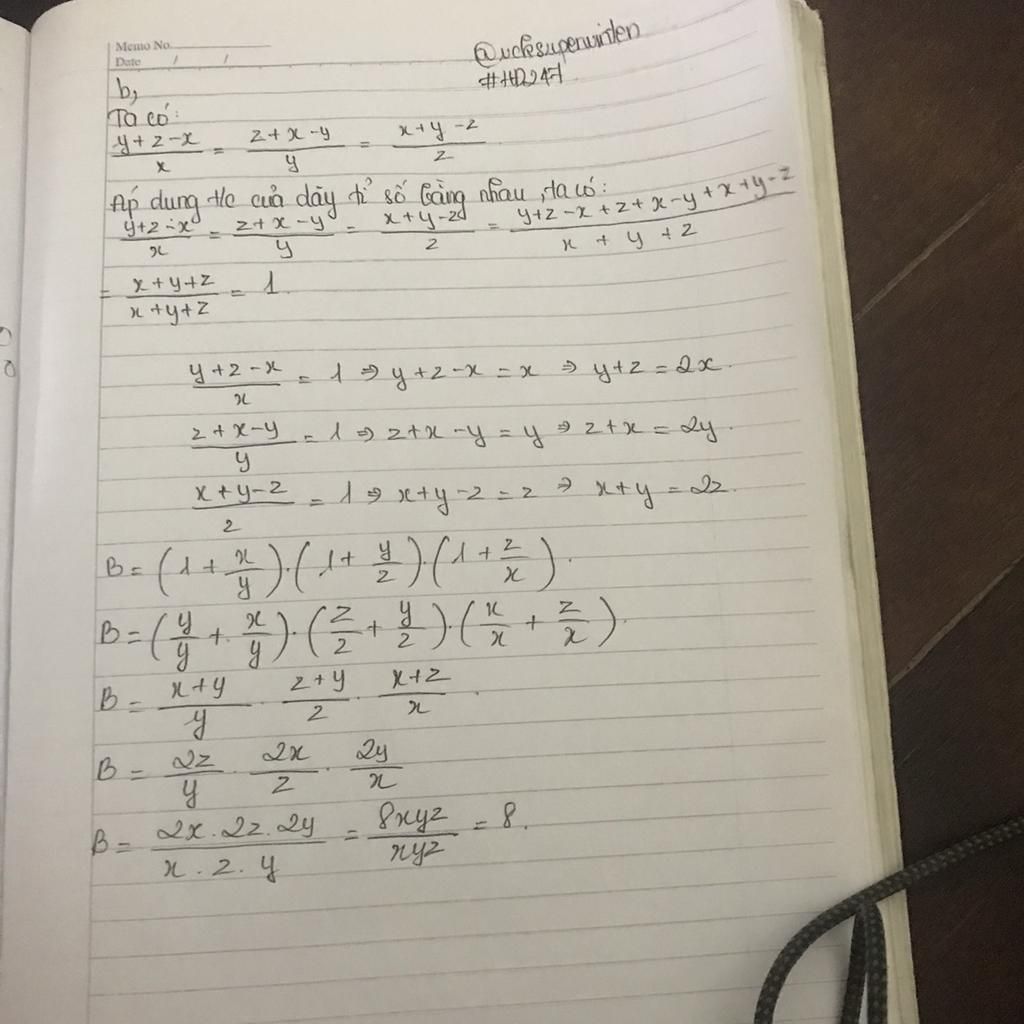 Memo No.
Date / /
@ucksuperwinten
#HD247
b,
Ta có:
(y+z-x)/x = (z+x-y)/y = (x+y-z)/z
Áp dụng t/c của dãy tỉ số bằng nhau, ta có:
(y+z-x)/x = (z+x-y)/y = (x+y-z)/z = (y+z-x+z+x-y+x+y-z)/(x+y+z)
= (x+y+z)/(x+y+z) = 1.
(y+z-x)/x = 1 ⇒ y+z-x = x ⇒ y+z = 2x.
(z+x-y)/y = 1 ⇒ z+x-y = y ⇒ z+x = 2y.
(x+y-z)/z = 1 ⇒ x+y-z = z ⇒ x+y = 2z.
B = (1 + x/y).(1 + y/z).(1 + z/x).
B = (y/y + x/y).(z/z + y/z).(x/x + z/x).
B = (x+y)/y . (z+y)/z . (x+z)/x .
B = 2z/y . 2x/z . 2y/x
B = (2x.2z.2y)/(x.z.y) = 8xyz/xyz = 8.